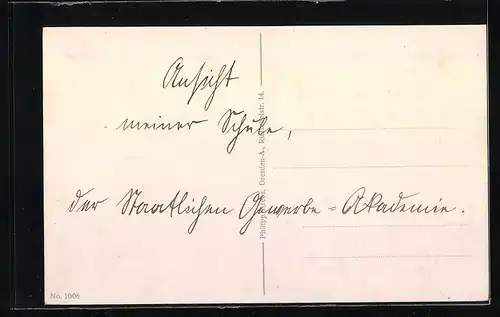 Ansicht
meiner Schule,
der Staatlichen Gewerbe=Akademie.
Dresden-A.,
14.
No. 1008